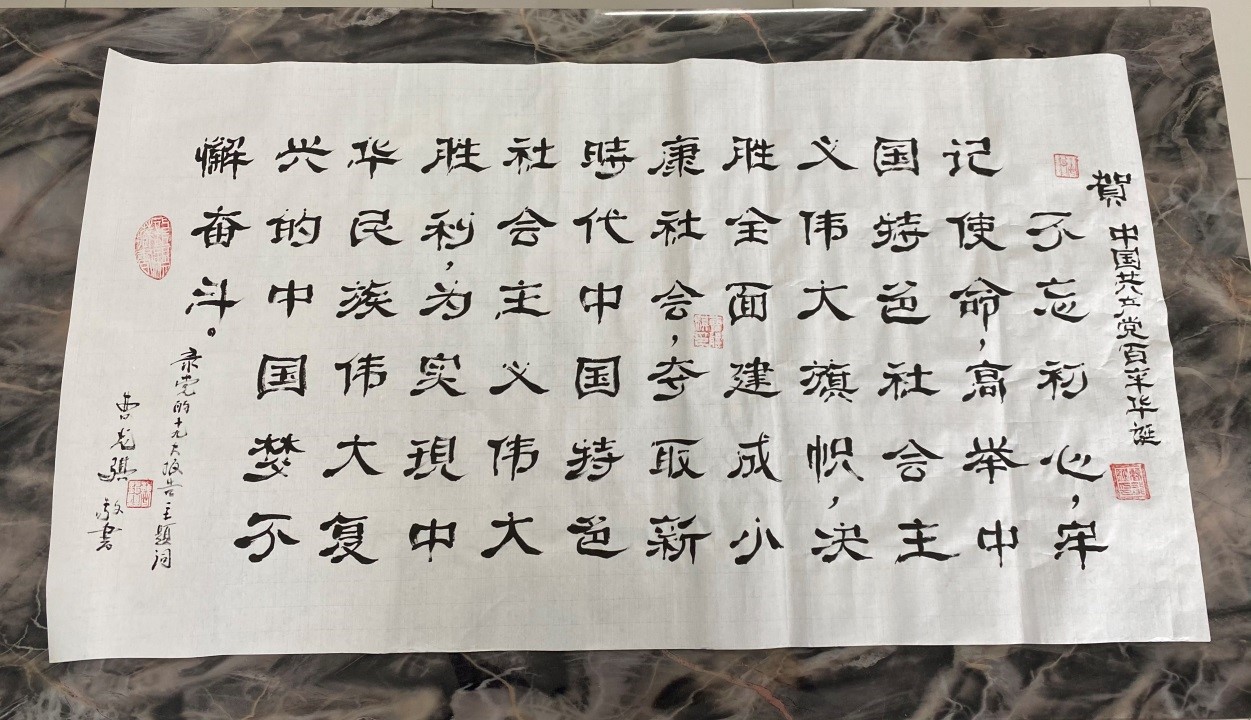 賀 中国共产党百年华诞
不忘初心，牢
记使命，高举中
国特色社会主
义伟大旗帜，决
胜全面建成小
康社会，夺取新
時代中国特色
社会主义伟大
胜利，为实現中
华民族伟大复
兴的中国梦不
懈奋斗。
录党的十九大报告主题词
曹龙 敬書